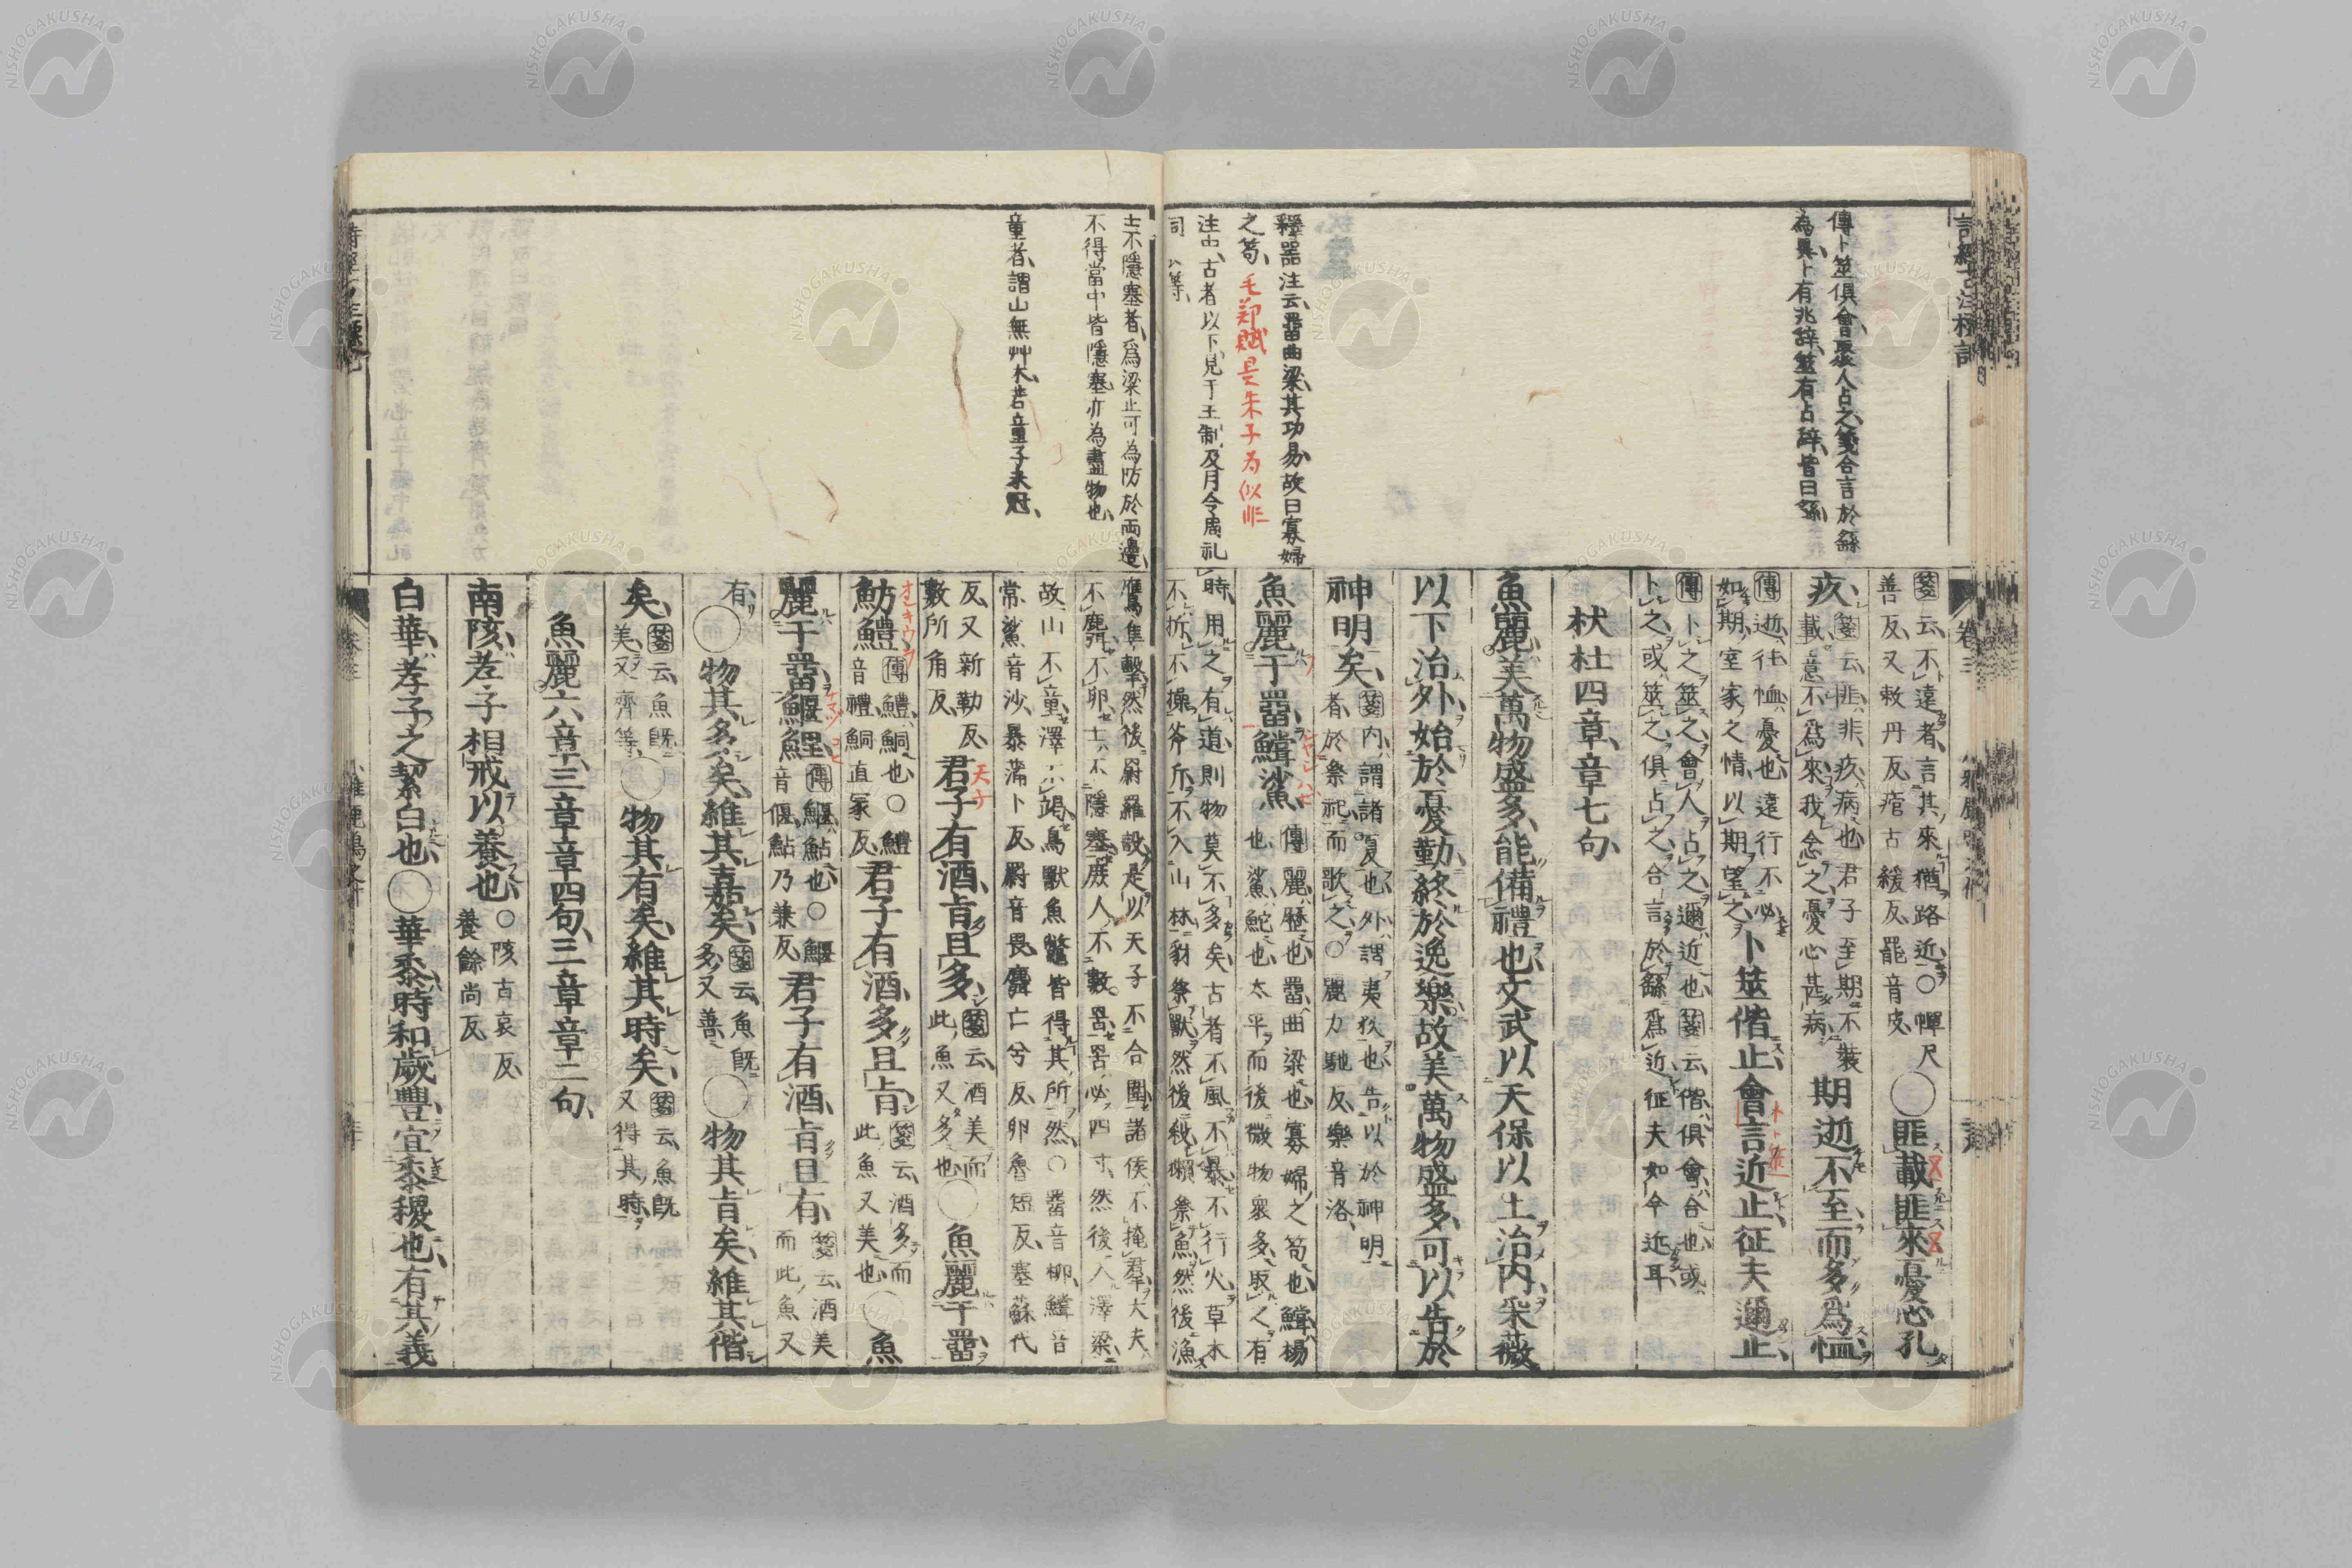 傳卜筮俱會聚人占之箋合言於繇
為異卜有兆辭筮有占辭皆曰繇
釋器注云罶曲梁其功易故曰寡婦
之笱
毛鄭賦是朱子为似非
注中古者以下見于王制及月令周礼
箋云不遠者言其來猶路近○幝尺
善反又敕丹反痯古緩反罷音皮
○匪載匪來憂心孔
疚
箋云匪非疚病也君子至期不裝
載意不爲來我念之憂心甚病
期逝不至而多爲恤
傳逝往恤憂也遠行不必
如期室家之情以期望之
卜筮偕止會言近止征夫邇止
傳卜之筮之會人占之邇近也箋云偕俱會合也或
卜之或筮之俱占之合言於繇爲近征夫如今近耳
杕杜四章章七句
魚麗美萬物盛多能備禮也文武以天保以上治内采薇
以下治外始於憂勤終於逸樂故美萬物盛多可以告於
神明矣
箋内謂諸夏也外謂夷狄也告以於神明
者於祭祀而歌之○麗力馳反樂音洛
魚麗于罶鱨鯊
傳麗歷也罶曲梁也寡婦之笱也鱨楊
也鯊鮀也太平而後微物衆多取之有
時用之有道則物莫不多矣古者不風不暴不行火草木
不折不操斧斤不入山林豺祭獸然後殺獺祭魚然後漁
士不隱塞者爲梁止可為防於兩邊
不得當中皆隱塞亦為盡物也
童者謂山無艸木若童子未冠
鷹隼擊然後罻羅設是以天子不合圍諸侯不掩羣大夫
不麛不卵士不隱塞庶人不數罟罟必四寸然後入澤梁
故山不童澤不竭鳥獸魚鼈皆得其所然○罶音柳鱨音
常鯊音沙暴蒲卜反罻音畏麛亡兮反卵魯短反塞蘇代
反又新勒反
數所角反
君子有酒旨且多
箋云酒美而
此魚又多也
○魚麗于罶
魴鱧
傳鱧鮦也○鱧
音禮鮦直冢反
君子有酒多且旨
箋云酒多而
此魚又美也
○魚
麗于罶鰋鯉
傳鰋鮎也○鰋
音偃鮎乃兼反
君子有酒旨且有
箋云酒美
而此魚又
有
○物其多矣維其嘉矣
箋云魚既
多又善
○物其旨矣維其偕
矣
箋云魚既
美又齊等
○物其有矣維其時矣
箋云魚既
又得其時
魚麗六章三章章四句三章章二句
南陔孝子相戒以養也
○陔古哀反
養餘尚反
白華孝子之絜白也○華黍時和歲豐宜黍稷也有其義